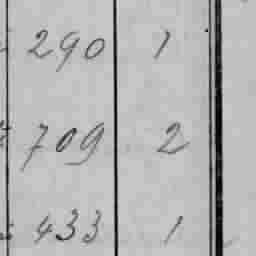 290 1
709 2
433 1